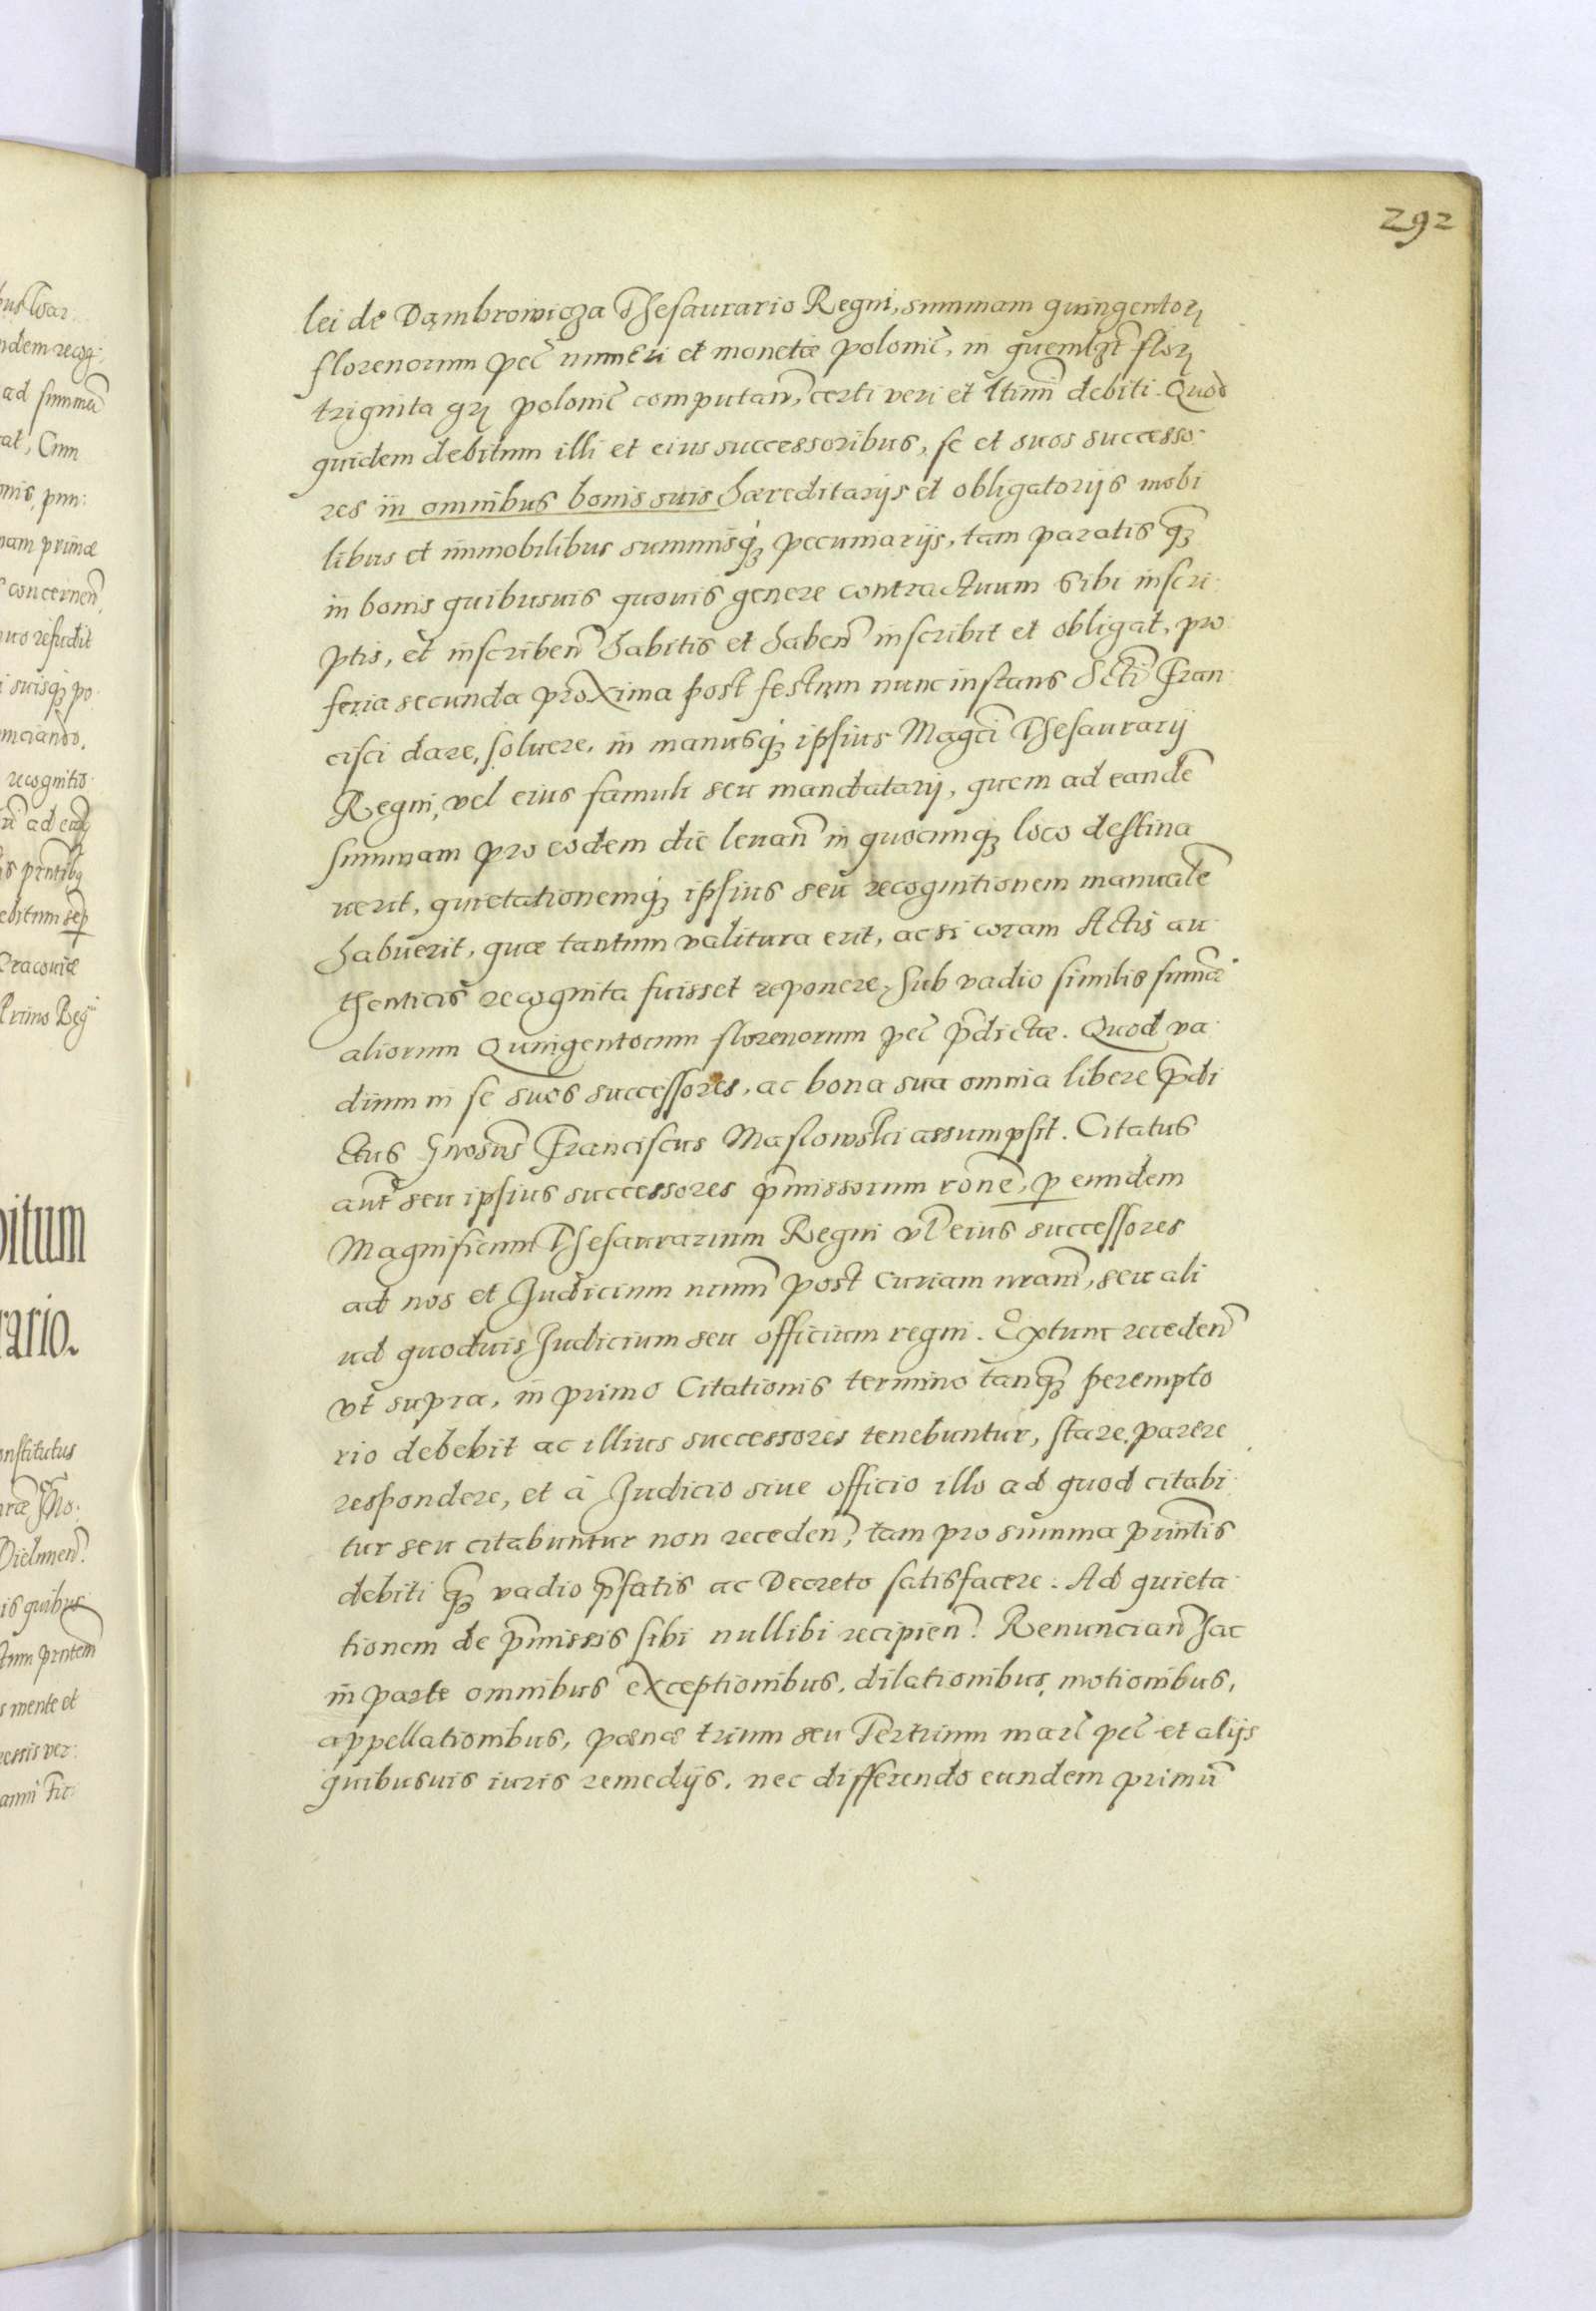 292
lei de Dąmbrowicza Thesaurario Regni, summam quingentorꝝ
florenorum pec̃ numeri et monetæ polonic̃, in quemlibet florꝝ
triginta grꝝ polonic̃ computan̄, certi veri et ltimi debiti. Quod
quidem debitum illi et eius successoribus, se et suos successo
res in omnibus bonis suis hæreditarijs et obligatorijs mobi
libus et immobilibus summisqꝫ pecuniarijs, tam paratis qꝫ
in bonis quibusuis quouis genere contractuum sibi inscri
ptis, et inscriben̄ habitis et haben̄ inscribit et obligat, pro
feria secunda proxima post festum nunc instans Scti Fran
cisci dare, soluere, in manusqꝫ ipsius Magci Thesaurarij
Regni, vel eius famuli seu mandatarij, quem ad eandē
summam pro eodem die leuan̄ in quocunqꝫ loco destina
uerit, quietationemqꝫ ipsius seu recognitionem manualē
habuerit, quæ tantum valitura erit, ac si coram Actis au
thenticis recognita fuisset reponere, sub vadio similis sum̄æ
aliorum Quingentorum florenorum pec̃ p̄dictæ. Quod va
dium in se suos successores, ac bona sua omnia libere p̄di
ctus Gnosus Franciscus Maslowski assumpsit. Citatus
aut̄ seu ipsius successores p̄missorum rōne, ꝑ eundem
Magnificum Thesaurarium Regni vl̄ eius successores
ad nos et Judicium nr̄um post curiam nr̄am, seu ali
ud quoduis Judicium seu officium regni. Extunc receden̄
vt supra, in primo Citationis termino tanqꝫ perempto
rio debebit ac illius successores tenebuntur, stare, parere
respondere, et à Judicio siue officio illo ad quod citabi
tur seu citabuntur non receden̄, tam pro summa prn̄tis
debiti qꝫ vadio p̄fatis ac Decreto satisfacere. Ad quieta
tionem de p̄missis sibi nullibi recipien̄. Renuncian̄ hac
in parte omnibus exceptionibus, dilationibus, motionibus,
appellationibus, pænæ trium seu Pertrium marc̃ pec̃ et alijs
quibusuis iuris remedijs, nec differendo eundem primū